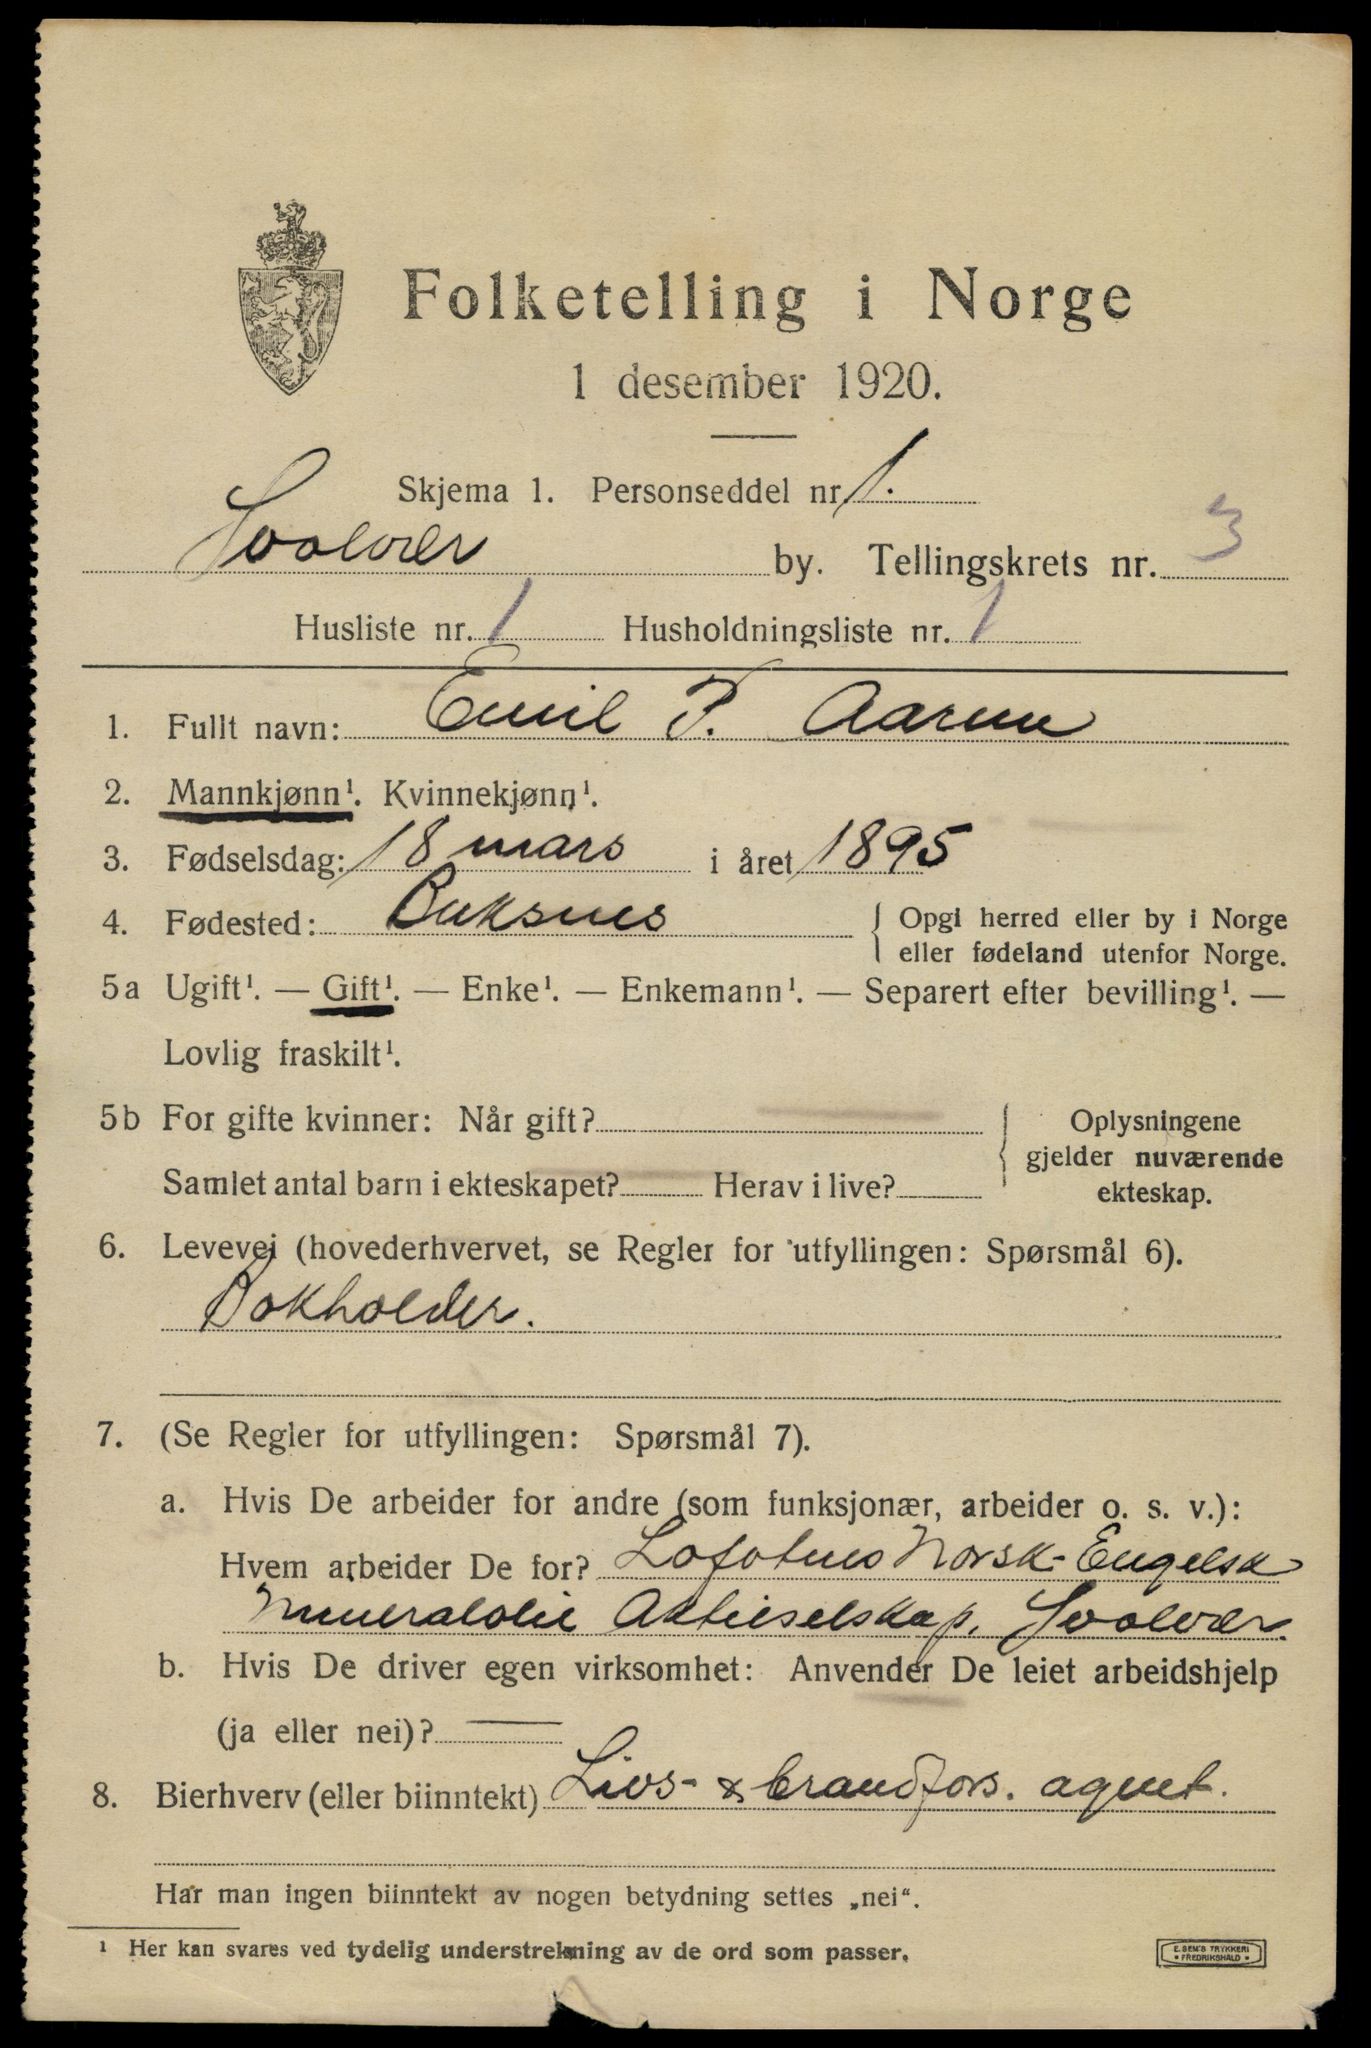 Folketelling i Norge
1 desember 1920.
Skjema 1. Personseddel nr. 1.
Svolvær by. Tellingskrets nr. 3
Husliste nr. 1 Husholdningsliste nr. 1
1. Fullt navn: Emil P.
2. Mannkjønn¹. Kvinnekjønn¹.
3. Fødselsdag: 18 mars i året 1895
4. Fødested: Buksnes { Opgi herred eller by i Norge
eller fødeland utenfor Norge.
5a Ugift¹. — Gift¹. — Enke¹. — Enkemann¹. — Separert efter bevilling¹. —
Lovlig fraskilt¹.
5b For gifte kvinner: Når gift? { Oplysningene
gjelder nuværende
Samlet antal barn i ekteskapet? Herav i live? ekteskap.
6. Levevei (hovederhvervet, se Regler for utfyllingen: Spørsmål 6).
Bokholder.
7. (Se Regler for utfyllingen: Spørsmål 7).
a. Hvis De arbeider for andre (som funksjonær, arbeider o. s. v.):
Hvem arbeider De for? Lofotens Norsk-Engelsk
Mineralolie Aktieselskap, Svolvær.
b. Hvis De driver egen virksomhet: Anvender De leiet arbeidshjelp
(ja eller nei)? —
8. Bierhverv (eller biinntekt) Livs- & brandfors. agent.
Har man ingen biinntekt av nogen betydning settes „nei“.
¹ Her kan svares ved tydelig understrekning av de ord som passer.
E. SEM'S TRYKKERI
• FREDRIKSHALD •